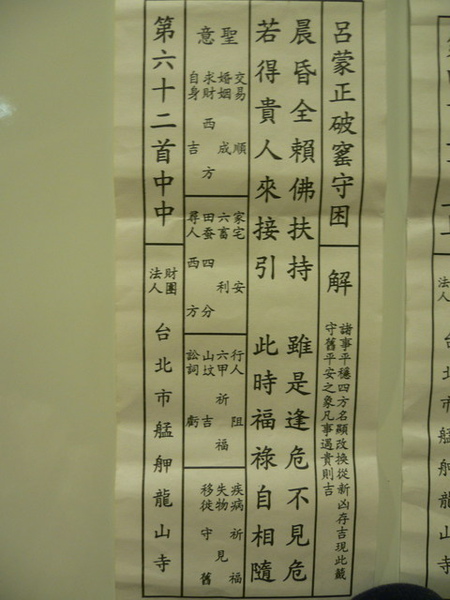 呂蒙正破窰守困
解
諸事平穩四方名顯改換從新凶存吉現此籤
守舊平安之象凡事遇貴則吉
晨昏全賴佛扶持 雖是逢危不見危
若得貴人來接引 此時福祿自相隨
聖意
交易 順
婚姻 成
求財 西方
自身 吉
家宅 安
六畜 利
田蚕 四分
尋人 西方
行人 阻
六甲 祈福
山坟 吉
訟詞 虧
疾病 祈福
失物 見
移徙 守舊
第六十二首中中
財團法人 台北市艋舺龍山寺
法人 台北市艋舺龍山寺